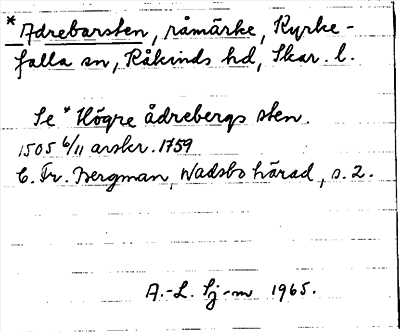 *Ädrebarsten, råmärke, Kyrke-
falla sn, Kåkinds hd, Skar. l.
Se *Högre ådrebergs sten.
1505 6/11 avskr. 1759
C. Fr. Bergman, Wadsbo härad, s. 2.
A.-L. Sj-m 1965.